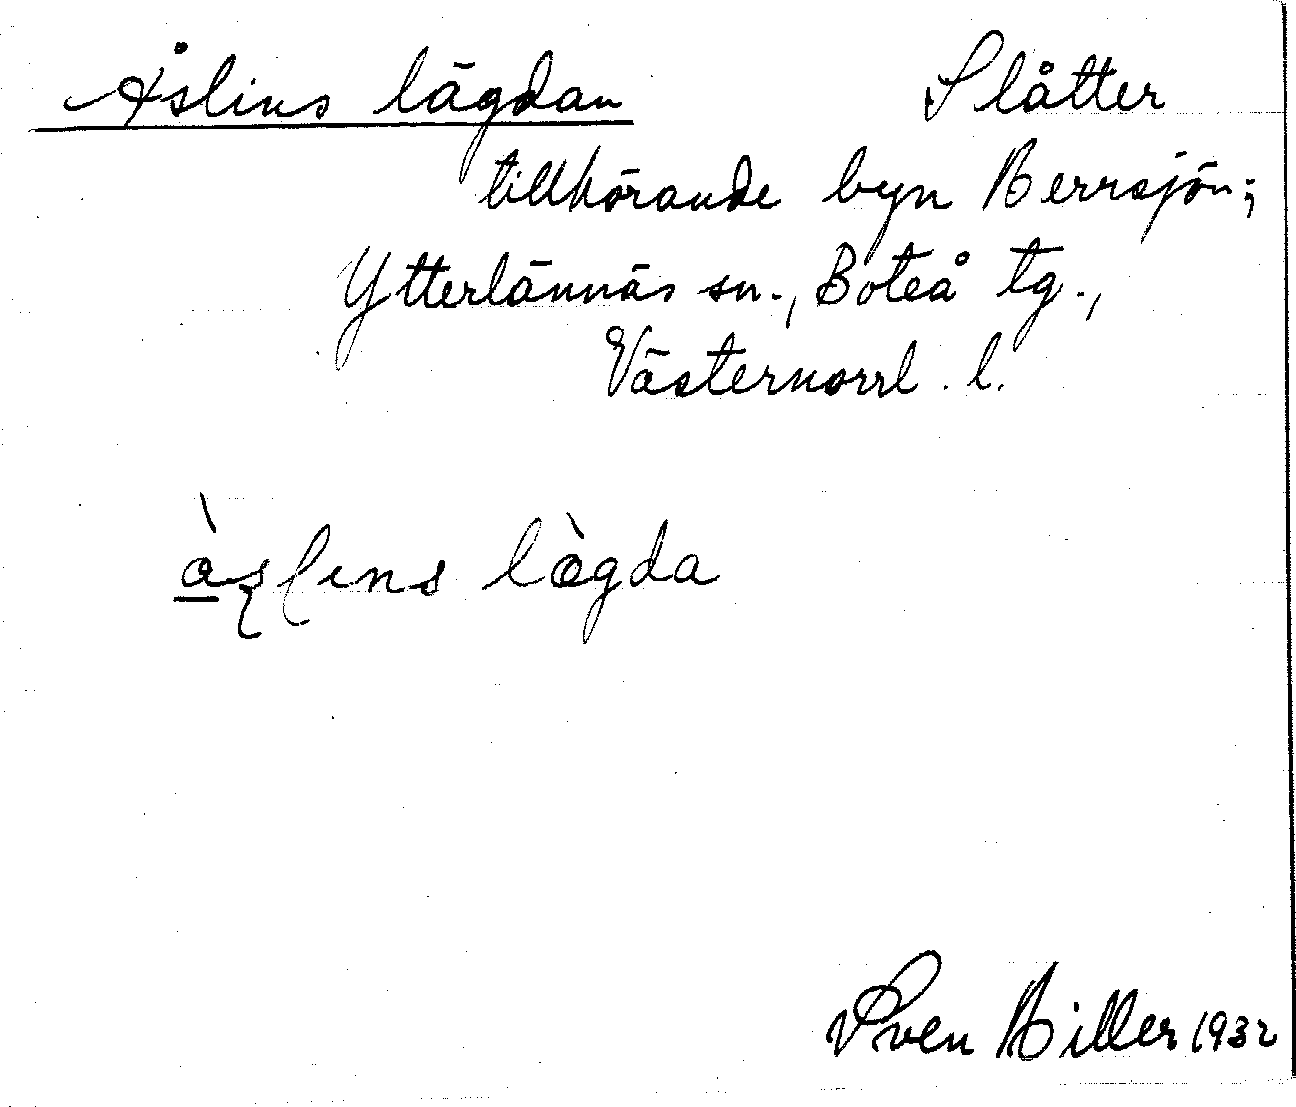 Åslins lägdan Slåtter
tillhörande byn Berrsjön;
Ytterlännäs sn., Boteå tg.,
Västernorrl. l.
lägda
Sven Biller 1932